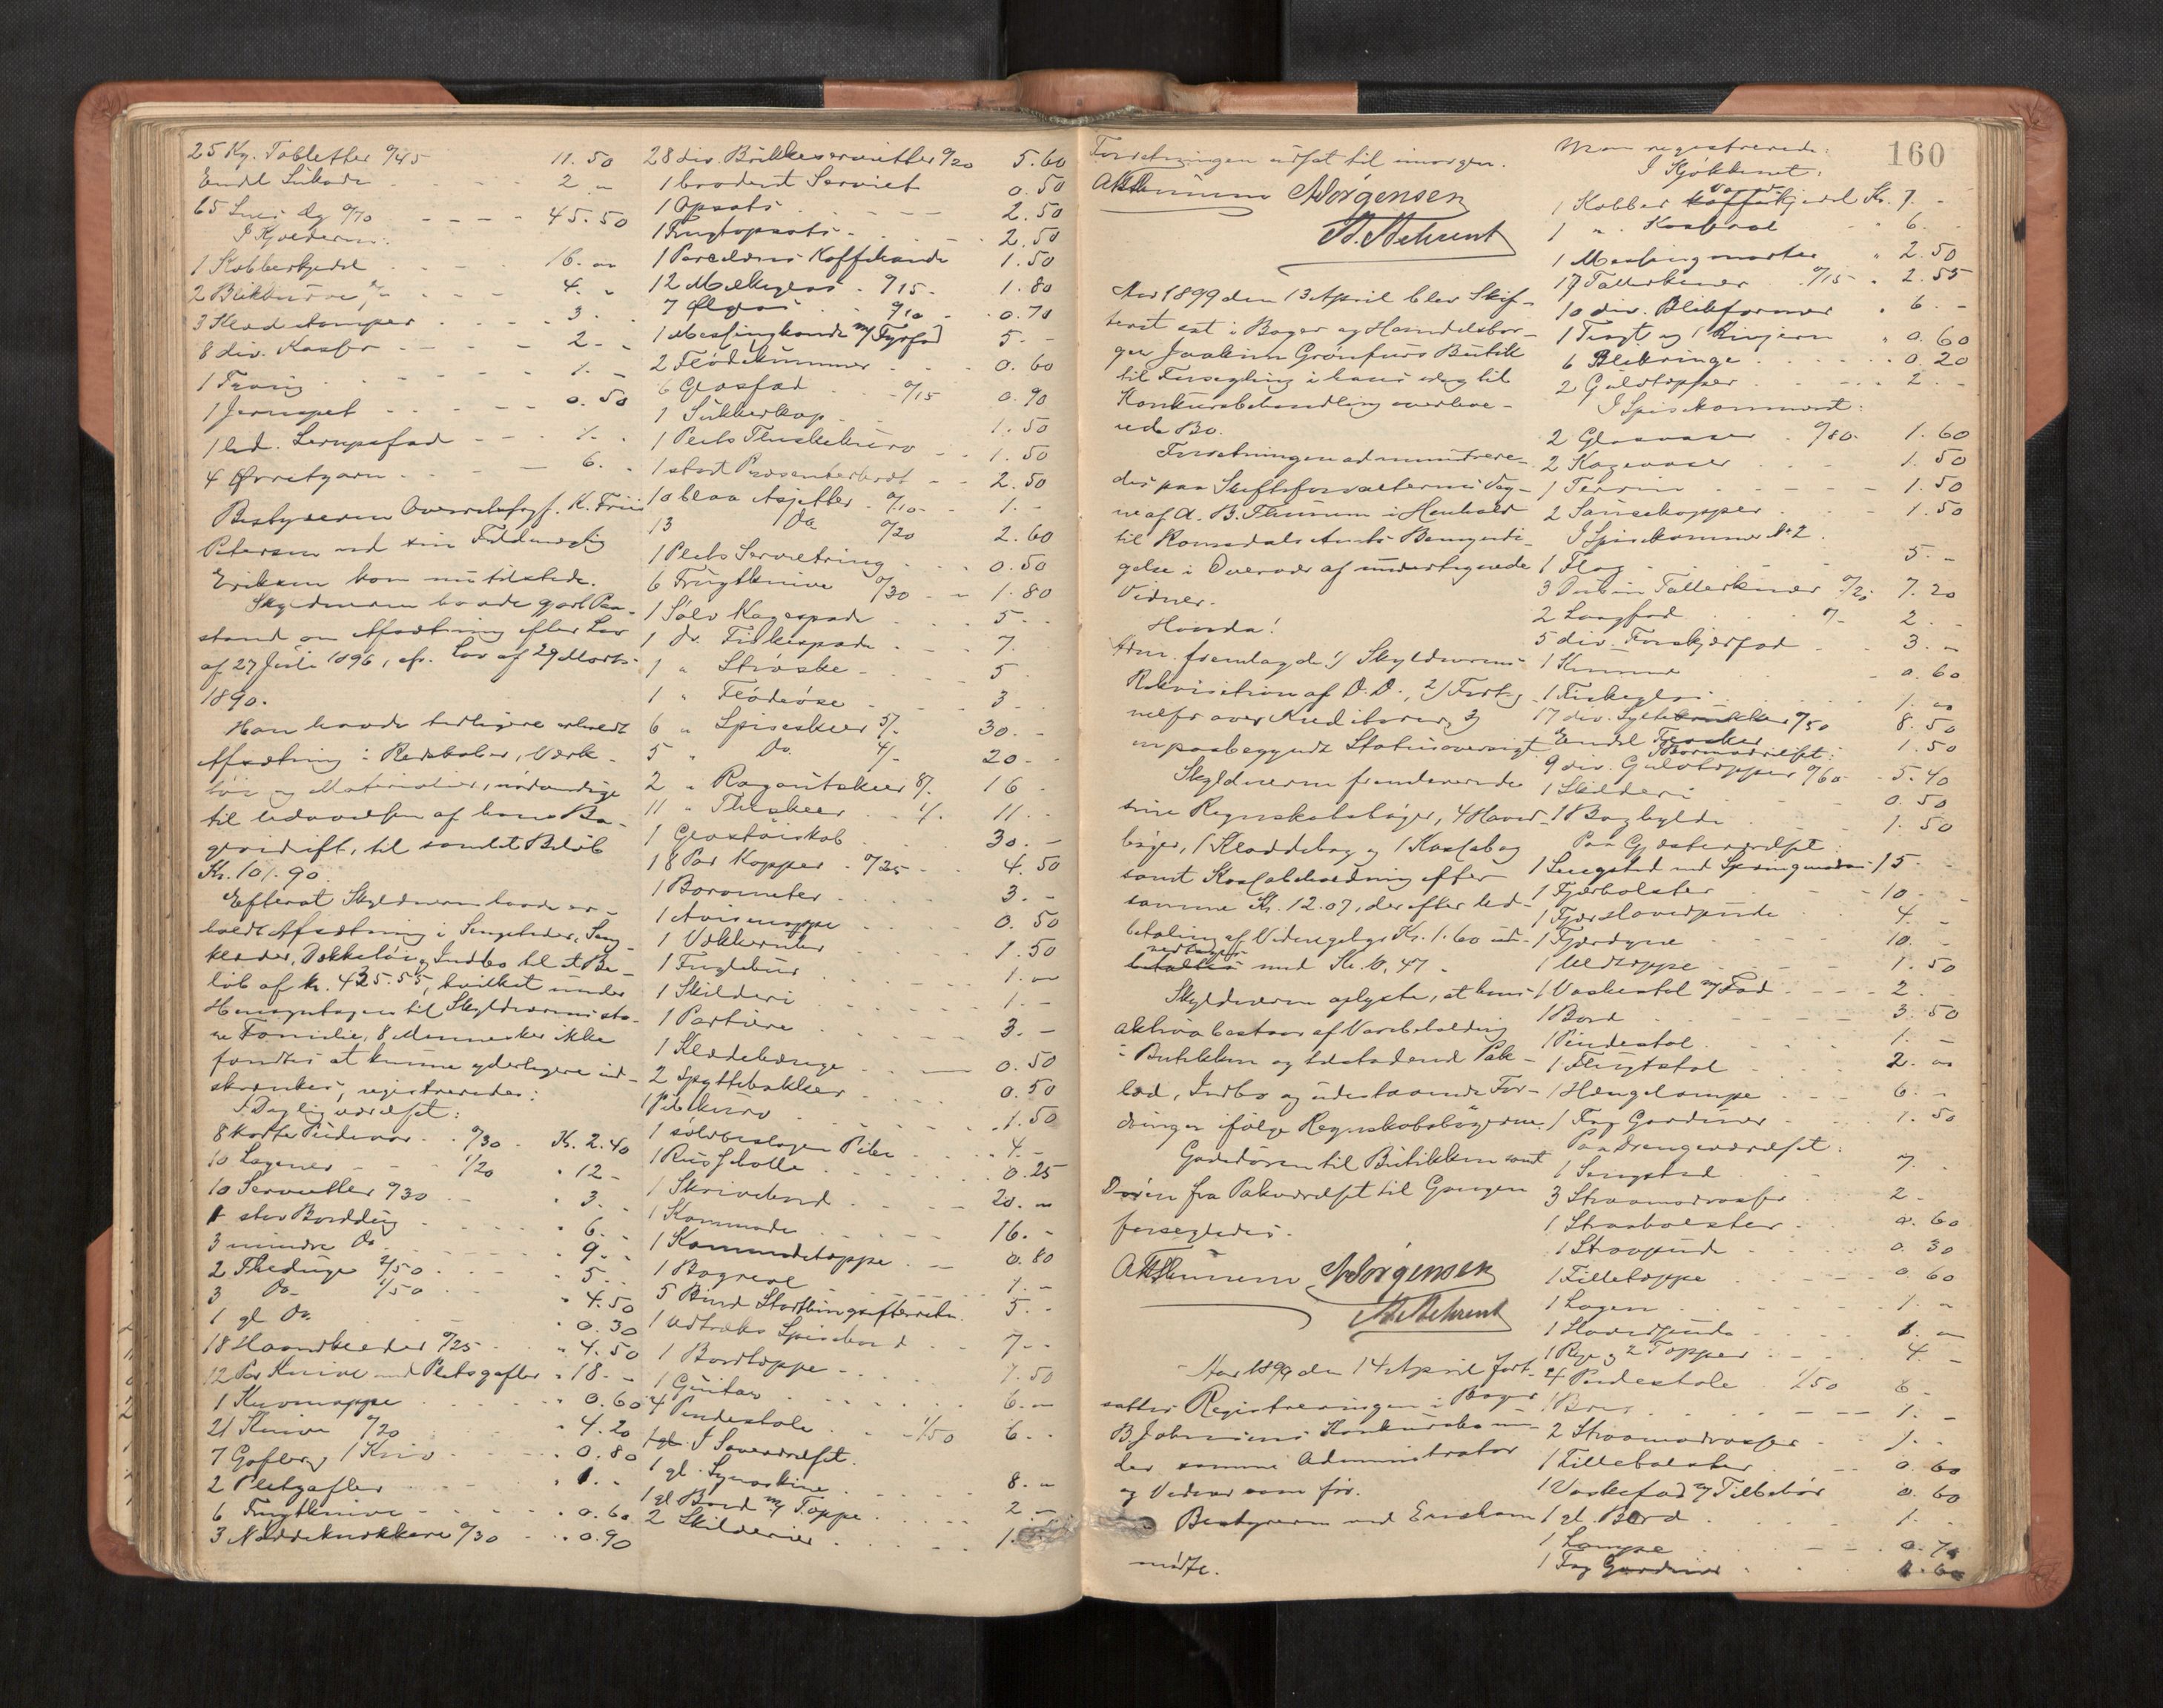 25 Kg. Tabletter 0/45 11.50
Endel Sukade 2 "
65 Snes Æg 0/70 45.50
I Kjælderen:
1 Kobberkjedel 16. "
2 Blikbunne 4. "
3 3. "
8 div. Kasser 2. "
1 1. "
1 Jernspet 0.50
1 Sirupsfad 1. "
4 Ørretgarn 6. "
Bestyreren Overretssagf. K. Friis
Petersen ved sin Fuldmægtig
Eriksen kom nu tilstede.
Skyldneren havde gjort Paa-
stand om Afsætning efter Lov
af 27 Juli 1896, cfr. Lov af 29 Marts
1890.
Han havde tidligere erholdt
Afsætning i Redskaber, Værk-
tøi og Materialier, nødvendige
til Udøvelsen af hans Ba-
geridrift, til samlet Beløb
Kr. 101.90.
Efterat Skyldneren havde er-
holdt Afsætning i Sengesteder, Seng-
klæder, Dækketøi og Indbo til et Be-
løb af Kr. 425.55, hvilket under
Hensyntagen til Skyldnerens sto-
re Familie, 8 Mennesker ikke
fandtes at kunne yderligere ind-
skrænkes, registreredes:
I Dagligværelset:
8 hvide Pudevar 0/30 Kr. 2.40
10 Lagener 1/20 " 12 -
10 Servietter 0/30 " 3. -
1 stor Borddug " 6. -
3 mindre Do. " 9. -
2 Theduge 2/50 " 5. -
3 Do. 1/50 " 4.50
1 gl. Do. " 0.30
18 Haandklæder 0/25 " 4.50
12 Par Knive med Pletsgafler " 18. -
1 Knivmappe " 0.60
21 Knive 0/20 " 4.20
7 Gafler og 1 Kniv " 0.80
2 Pletgafler " 1. -
6 Frugtknive " 0.60
3 Nøddeknækkere 0/30 " 0.90
28 div. Brikkeservietter 0/20 5.60
1 broderet Serviet 0.50
1 Opsats 2.50
1 Frugtopsats 2.50
1 Porcelæns Kaffekande 1.50
12 Melkeglas 0/15 1.80
7 Ølglas 0/10 0.70
1 Messingkande m/ Fyrfad 5. -
2 Flødekummer 0.60
6 Glasfad 0/15 0.90
1 Sukkerkop 1.50
1 Plets Flaskekurv 1.50
1 stort Præsenterbret 2.50
10 blaa Asjetter 0/10 1. -
13 Do. 0/20 2.60
1 Plets Servietring 0.50
6 Frugtknive 0/30 1.80
1 Sølv Kagespade 5. -
1 do. Fiskespade 7.
1 " Strøske 5
1 " Flødeøse 3
6 " Spiseskeer 5/- 30. -
5 " Do. 4/- 20 -
2 " Ragoutskeer 8/- 16 -
11 " Theskeer 1/- 11. -
1 Glastøiskab 30. -
18 Par Kopper 0/25 4.50
1 Barometer 3. -
1 Avismappe 0.50
1 Vækkeruhr 1.50
1 Fuglebur 1. "
1 Skilderi 1. -
1 Portiere 3. -
1 Klædehænge 0.50
2 Spyttebakker 0.50
1 Pibekurv 1.50
1 sølvbeslagen Pibe 4. -
1 Pusbolle 0.25
1 Skrivebord 20. "
1 Kommode 16. -
1 Kommodetæppe 0.80
1 Bogreol 1. -
5 Bind Storthingsefterretn. 5. -
1 Udtræks Spisebord 7 -
1 Bordtæppe 7.50
1 Guitar 6. "
4 Pindestole 1/50 6. -
I Soveværelset.
1 gl. Symaskine 8. "
1 gl. Bord m/ Tæppe 2. -
2 Skilderier 1.
160
Forretningen udsat til imorgen.
A B Thunem N Jørgensen
Aar 1899 den 13 April blev Skif-
teret sat i Bager og Handelsbor-
ger Joakim Grønfurs Butik
til Forsegling i hans idag til
Konkursbehandling overleve-
rede Bo.
Forretningen administrere-
des paa Skifteforvalterens Veg-
ne af A. B. Thunem i Henhold
til Romsdals Amts Bemyndi-
gelse i Overvær af undertegnede
Vidner.
Hvorda!
Adm. fremlagde 1/ Skyldnerens
Rekvisition af D.D., 2/ Forteg-
nelse over Kreditorer, 3/
en paabegyndt Statusoversigt
Skyldneren fremleverede
sine Regnskabsbøger, 4 Hoved-
bøger, 1 Kladdebog og 1 Kassabog
samt Kassabeholdning efter
samme Kr. 12.07, der efter Ud-
betaling af Vidnegebyr Kr. 1.60 ud-
betaltes med Kr. 10,47.
Skyldneren oplyste, at hans
aktiva bestaar af Varebeholdning
i Butikken og tilstødende Pak-
bod, Indbo og udestaaende For-
dringer ifølge Regnskabsbøgerne.
Gadedøren til Butikken samt
Døren fra Pakværelset til Gangen
forsegledes.
A B Thunem N Jørgensen
Aar 1899 den 14 April fort-
sattes Registreringen i Bager
B. Johnsens Konkursbo un-
der samme Administrator
og Vidner som før.
Bestyreren ved Eriksen
mødte.
Man registrerede:
I Kjøkkenet:
1 Kobber kjedel Kr. 7. -
1 " Kasserol " 6. -
1 Messingmorter " 2.50
17 Tallerkener 0/15 " 2.55
10 div. Blikformer " 6 -
1 Tragt og 1 Rivjern " 0.60
6 Blikringe 0.20
2 Guldtæpper 2. -
I Spisekammeret:
2 Glasvaser 0/80 1.60
2 Kagevaser 1.50
1 Terrin 1.50
2 Sausekopper 1.50
I Spisekammer No 2.
1 Flag 5. -
3 Dusin Tallerkener 0/20 7.20
2 Langfad 1/- 2. -
5 div. Forskjærfad 3. "
1 Kumme 0.60
1 Fiskeglas 1. "
17 div. Syltekrukker 0/50 8.50
Endel Flasker 1.50
9 div. Gulvtæpper 0/60 5.40
1 Skilderi 0.50
1 Boghylde 1.50
Paa Gjesteværelset:
1 Sengested med Springmadras 15 -
1 Fjærbolster 10 -
1 Fjærshovedpude 4. -
1 Fjærdyne 10. -
1 Uldtæppe 1.50
1 Vaskestol m/ Fad 2. -
1 Bord 3.50
1 Pindestol 1. -
1 Flugtstol 2. "
1 Hængelampe 6. -
1 Fag Gardiner 1.50
Paa Drengeværelset:
1 Sengested 7.
3 Straamadrasser 2 -
1 Straabolster 0.60
1 Straapude 0.30
1 Filletæppe 0.60
1 Lagen 1. "
1 Hovedpude 1. "
1 Rye og 2 Tæpper 4. -
4 Pindestole 1/50 6 -
1 1. -
2 Straamadrasser 1. -
1 Fillebolster 0.60
1 Vaskefad m/ Tilbehør 0.60
1 gl. Bord 1. -
1 Lampe 0.70
1 Fag Gardiner 1.60